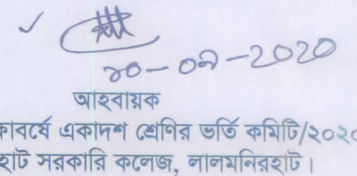 ২০-০৯-2020
আহবায়ক
একাদশ শ্রেণির ভর্তি কমিটি/২০২০
হাট সরকারি কলেজ, লালমনিরহাট।